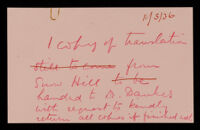 11/5/36
1 copy of translation
still to come from
Snow Hill to be
handed to D. Dawkes
with request to kindly
return all copies if finished with